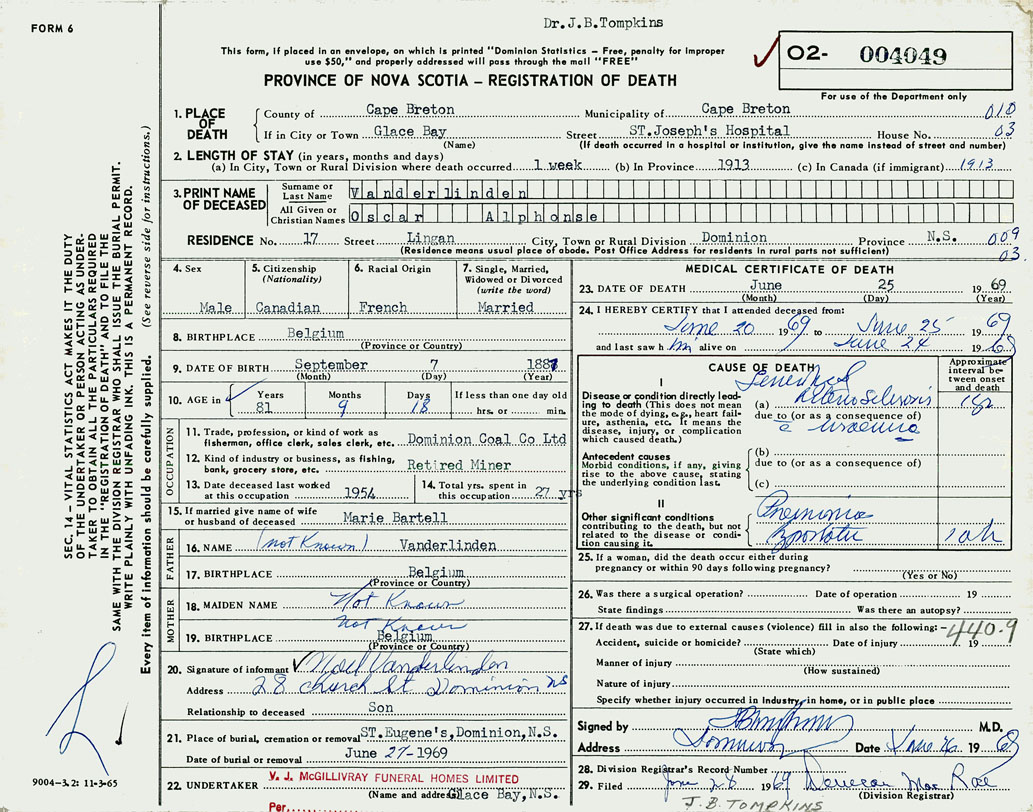 Dr.J.B.Tompkins
FORM 6
This form, if placed in an envelope, on which is printed "Dominion Statistics – Free, penalty for improper
use $50," and properly addressed will pass through the mail "FREE"
PROVINCE OF NOVA SCOTIA – REGISTRATION OF DEATH
02- 004049
For use of the Department only
1. PLACE OF DEATH
County of Cape Breton Municipality of Cape Breton 010
If in City or Town Glace Bay Street ST.Joseph's Hospital House No. 03
(Name) (If death occurred in a hospital or institution, give the name instead of street and number)
2. LENGTH OF STAY (in years, months and days)
(a) In City, Town or Rural Division where death occurred 1 week (b) In Province 1913 (c) In Canada (if immigrant) 1913
3. PRINT NAME OF DECEASED
Surname or Last Name Vanderlinden
All Given or Christian Names Oscar Alphonse
RESIDENCE No. 17 Street Lingan City, Town or Rural Division Dominion Province N.S. 009
(Residence means usual place of abode. Post Office Address for residents in rural parts not sufficient) 03.
4. Sex
Male
5. Citizenship
(Nationality)
Canadian
6. Racial Origin
French
7. Single, Married,
Widowed or Divorced
(write the word)
Married
8. BIRTHPLACE Belgium
(Province or Country)
9. DATE OF BIRTH September 7 1887
(Month) (Day) (Year)
10. AGE in Years 81 Months 9 Days 18 If less than one day old
hrs. or min.
OCCUPATION
11. Trade, profession, or kind of work as
fisherman, office clerk, sales clerk, etc. Dominion Coal Co Ltd
12. Kind of industry or business, as fishing,
bank, grocery store, etc. Retired Miner
13. Date deceased last worked
at this occupation 1954
14. Total yrs. spent in
this occupation 27 yrs
15. If married give name of wife
or husband of deceased Marie Bartell
FATHER
16. NAME (not Known) Vanderlinden
17. BIRTHPLACE Belgium
(Province or Country)
MOTHER
18. MAIDEN NAME Not Known
Not Known
19. BIRTHPLACE Belgium
(Province or Country)
20. Signature of informant Noel Vanderlinden
Address 28 Church St Dominion NS
Relationship to deceased Son
21. Place of burial, cremation or removal ST.Eugene's,Dominion,N.S.
Date of burial or removal June 27-1969
22. UNDERTAKER V. J. McGILLIVRAY FUNERAL HOMES LIMITED
(Name and address) Glace Bay,N.S.
Per.
MEDICAL CERTIFICATE OF DEATH
23. DATE OF DEATH June 25 1969
(Month) (Day) (Year)
24. I HEREBY CERTIFY that I attended deceased from:
June 20 1969 to June 25 1969
and last saw him alive on June 24 1969
CAUSE OF DEATH
Approximate interval between onset and death
I
Disease or condition directly leading to death (This does not mean the mode of dying, e.g., heart failure, asthenia, etc. It means the disease, injury, or complication which caused death.)
(a)
due to (or as a consequence of)
uraemia
Antecedent causes
Morbid conditions, if any, giving rise to the above cause, stating the underlying condition last.
(b)
due to (or as a consequence of)
(c)
II
Other significant conditions
contributing to the death, but not related to the disease or condition causing it.
Pneumonia
25. If a woman, did the death occur either during
pregnancy or within 90 days following pregnancy?
(Yes or No)
26. Was there a surgical operation? Date of operation 19
State findings Was there an autopsy?
27. If death was due to external causes (violence) fill in also the following:- 440.9
Accident, suicide or homicide? Date of injury 19
(State which)
Manner of injury
(How sustained)
Nature of injury
Specify whether injury occurred in industry, in home, or in public place
Signed by M.D.
Address Dominion Date June 26 1969
28. Division Registrar's Record Number
29. Filed June 28 1969
(Division Registrar)
J.B. TOMPKINS
SEC. 14 – VITAL STATISTICS ACT MAKES IT THE DUTY
OF THE UNDERTAKER OR PERSON ACTING AS UNDER-
TAKER TO OBTAIN ALL THE PARTICULARS REQUIRED
IN THE "REGISTRATION OF DEATH" AND TO FILE THE
SAME WITH THE DIVISION REGISTRAR WHO SHALL ISSUE THE BURIAL PERMIT.
WRITE PLAINLY WITH UNFADING INK. THIS IS A PERMANENT RECORD.
Every item of information should be carefully supplied. (See reverse side for instructions.)
9004-3.2: 11-3-65